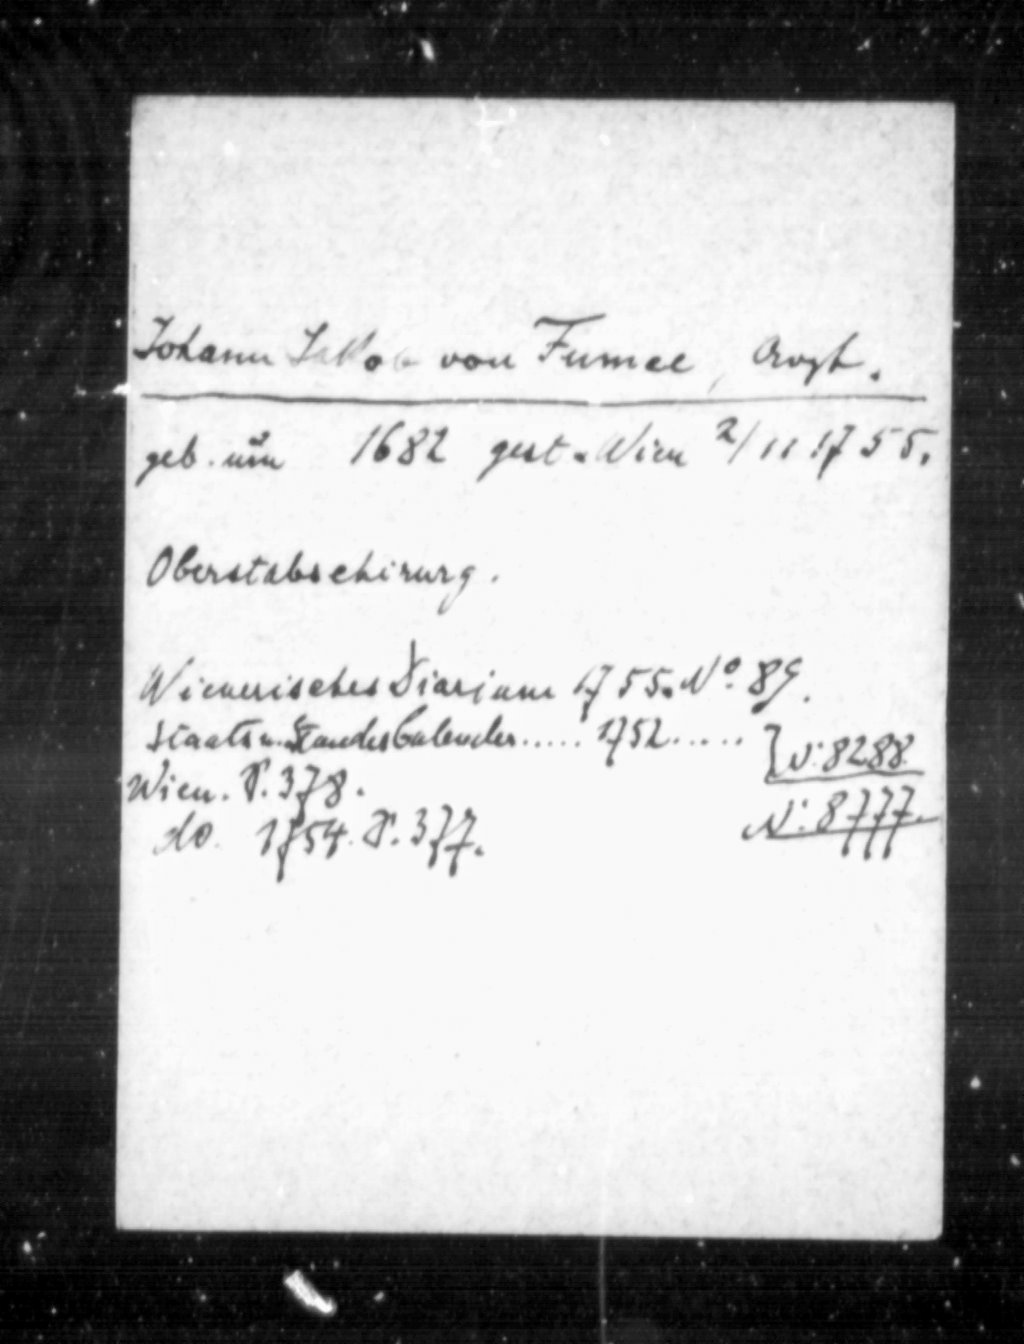 Johann Jakob von Fumee, Arzt.
geb. um 1682 gest. Wien 2/11 1755.
Oberstabschirurg.
Wienerisches Diarium 1755. No. 89.
Staats u. Standes Calender..... 1752.....
Wien. S. 378. } N: 8288.
do. 1754. S. 377. N: 8777.